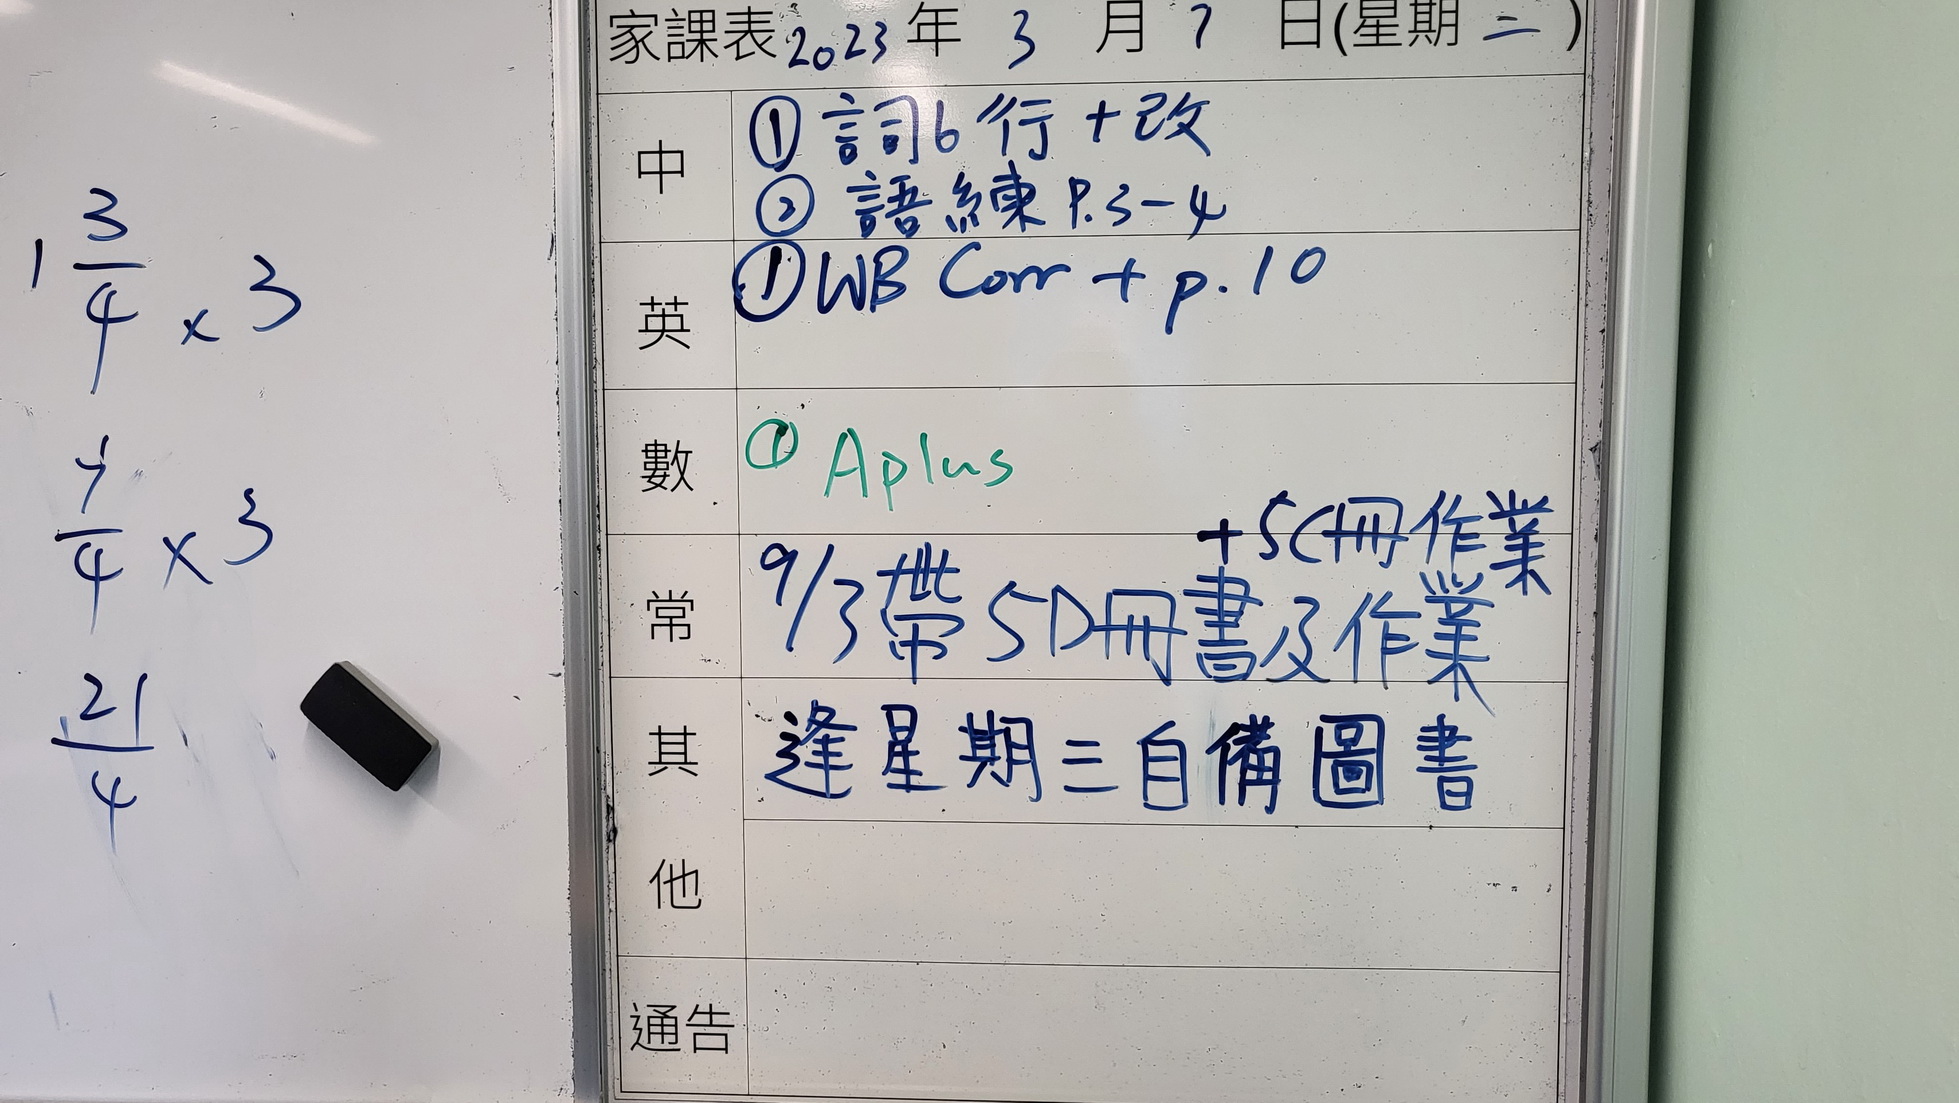 1 3/4 × 3
7/4 × 3
21/4
家課表 2023 年 3 月 7 日(星期 二 )
中
① 詞6行+改
② 語練 P.3-4
英
① WB Corr + p.10
數
① Aplus
常
+5C冊作業
9/3帶5D冊書及作業
其他
逢星期三自備圖書
通告